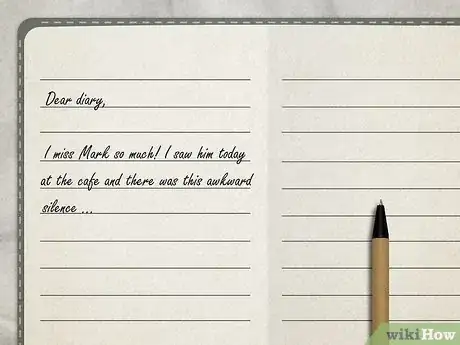 Dear diary,
I miss Mark so much! I saw him today
at the cafe and there was this awkward
silence ...
wikiHow